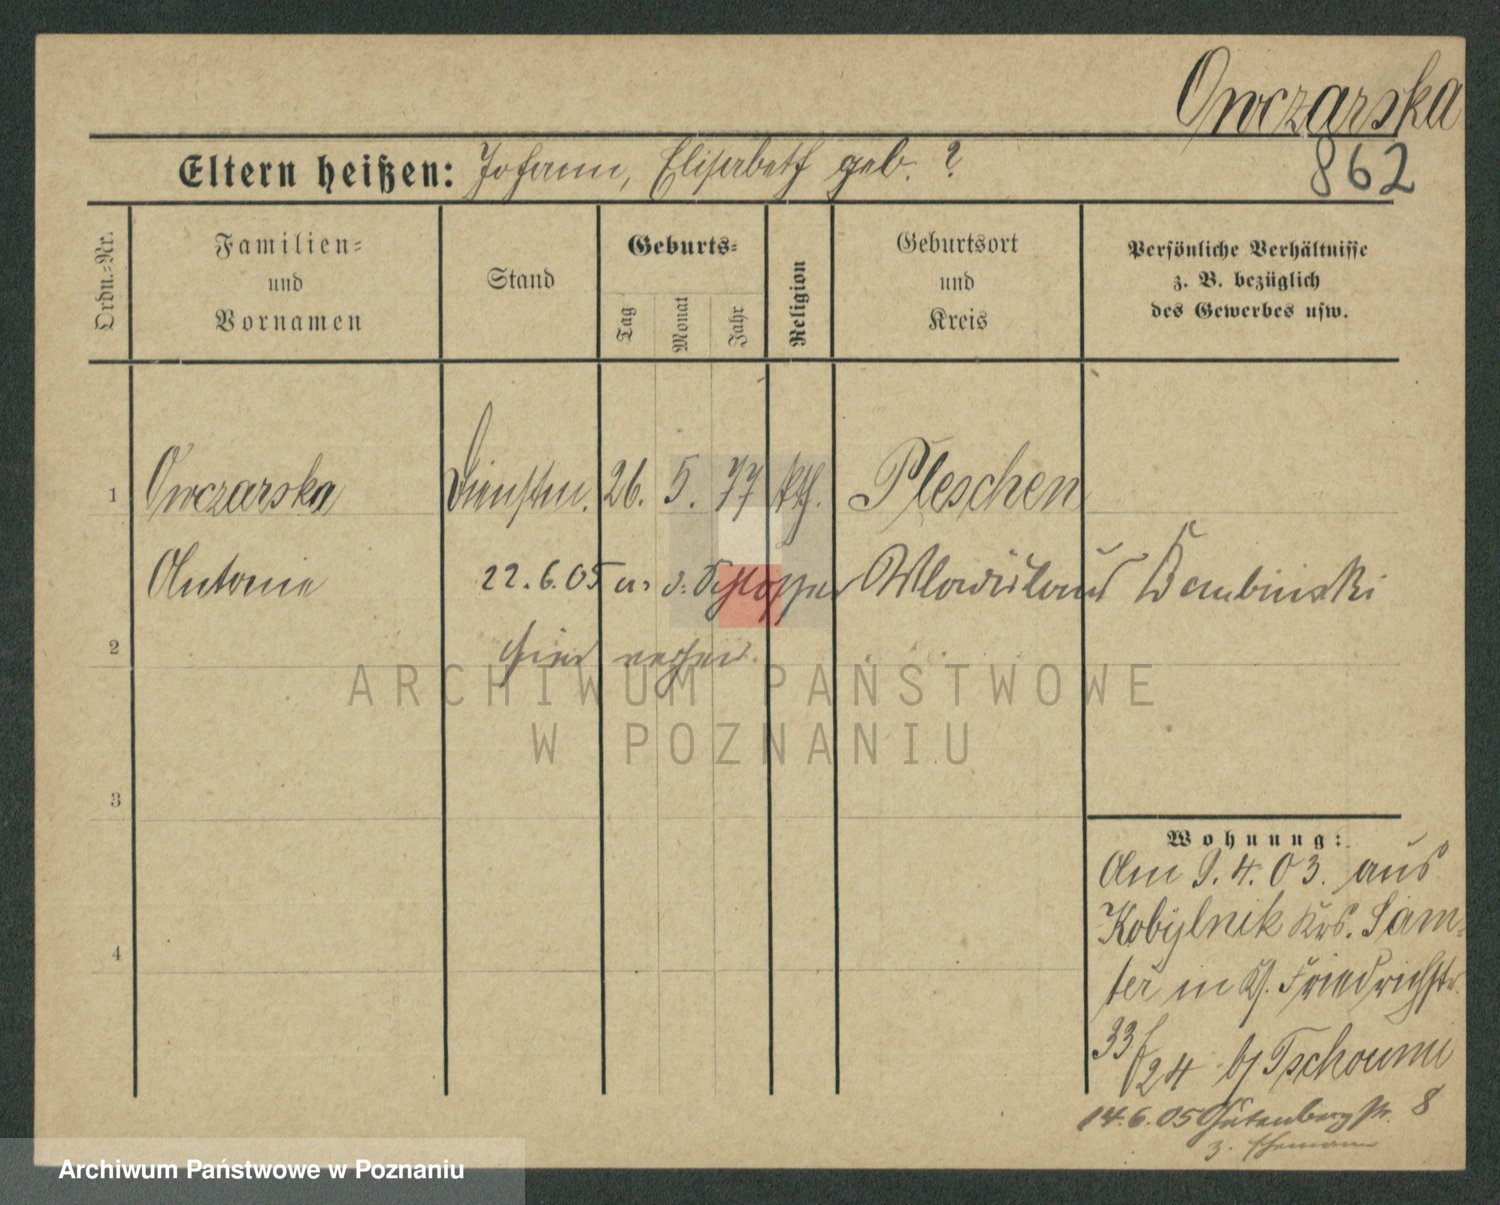 Owczarska
862
Eltern heißen: Johann, Elisabeth geb. ?
Ordn.=Nr.
Familien=
und
Vornamen
Stand
Geburts=
Tag
Monat
Jahr
Religion
Geburtsort
und
Kreis
Persönliche Verhältnisse
z. B. bezüglich
des Gewerbes usw.
1 Owczarska Dienstm. 26. 5. 77 kth. Pleschen
Antonie 22.6.05 u.
2 hier
3
4
ARCHIWUM PAŃSTWOWE
W POZNANIU
Wohnung:
Am 9.4.03. aus
Kobylnik Krs. Sam-
ter in Friedrichstr.
33/24 b/ Tschoumi
14.6.05 Gutenbergstr. 8
z. Ehemann
Archiwum Państwowe w Poznaniu